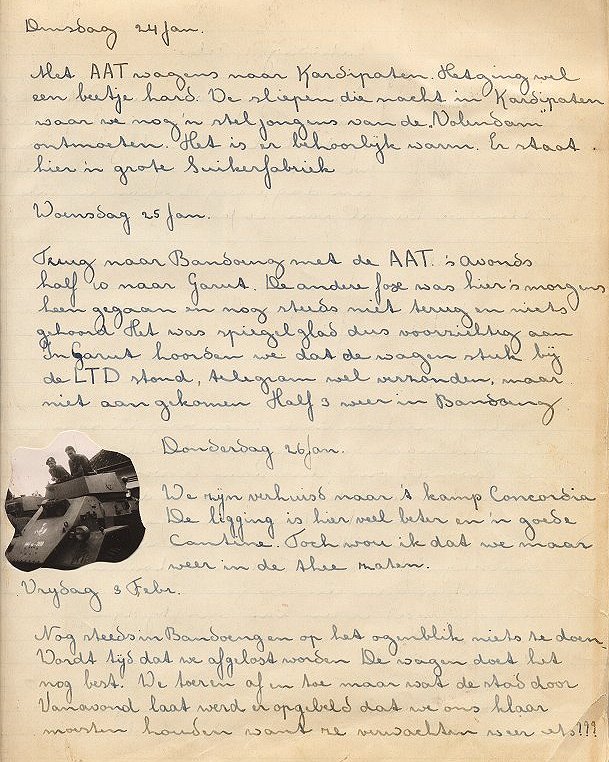 Dinsdag 24 Jan.
Met AAT wagens naar Kardipaten. Het ging wel
een beetje hard. We sliepen die nacht in Kardipaten
waar we nog 'n stel jongens van de "Volendam"
ontmoeten. Het is er behoorlijk warm. Er staat
hier 'n grote Suikerfabriek
Woensdag 25 Jan.
Terug naar Bandoeng met de AAT. 's avonds
half 10 naar Garut. De andere fox was hier 's morgens
heen gegaan en nog steeds niet terug en niets
gehoord. Het was spiegelglad dus voorzichtig aan
In Garut hoorden we dat de wagen stuk bij
de LTD stond, telegram wel verzonden, maar
niet aangekomen Half 3 weer in Bandoeng
Donderdag 26 Jan.
We zijn verhuisd naar 't kamp Concordia
De ligging is hier veel beter en 'n goede
Cantine. Toch wou ik dat we maar
weer in de thee zaten.
Vrijdag 3 Febr.
Nog steeds in Bandoeng en op het ogenblik niets te doen.
Wordt tijd dat we afgelost worden De wagen doet het
nog best. We toeren af en toe maar wat de stad door
Vanavond laat werd er opgebeld dat we ons klaar
moesten houden want ze verwachten weer iets???